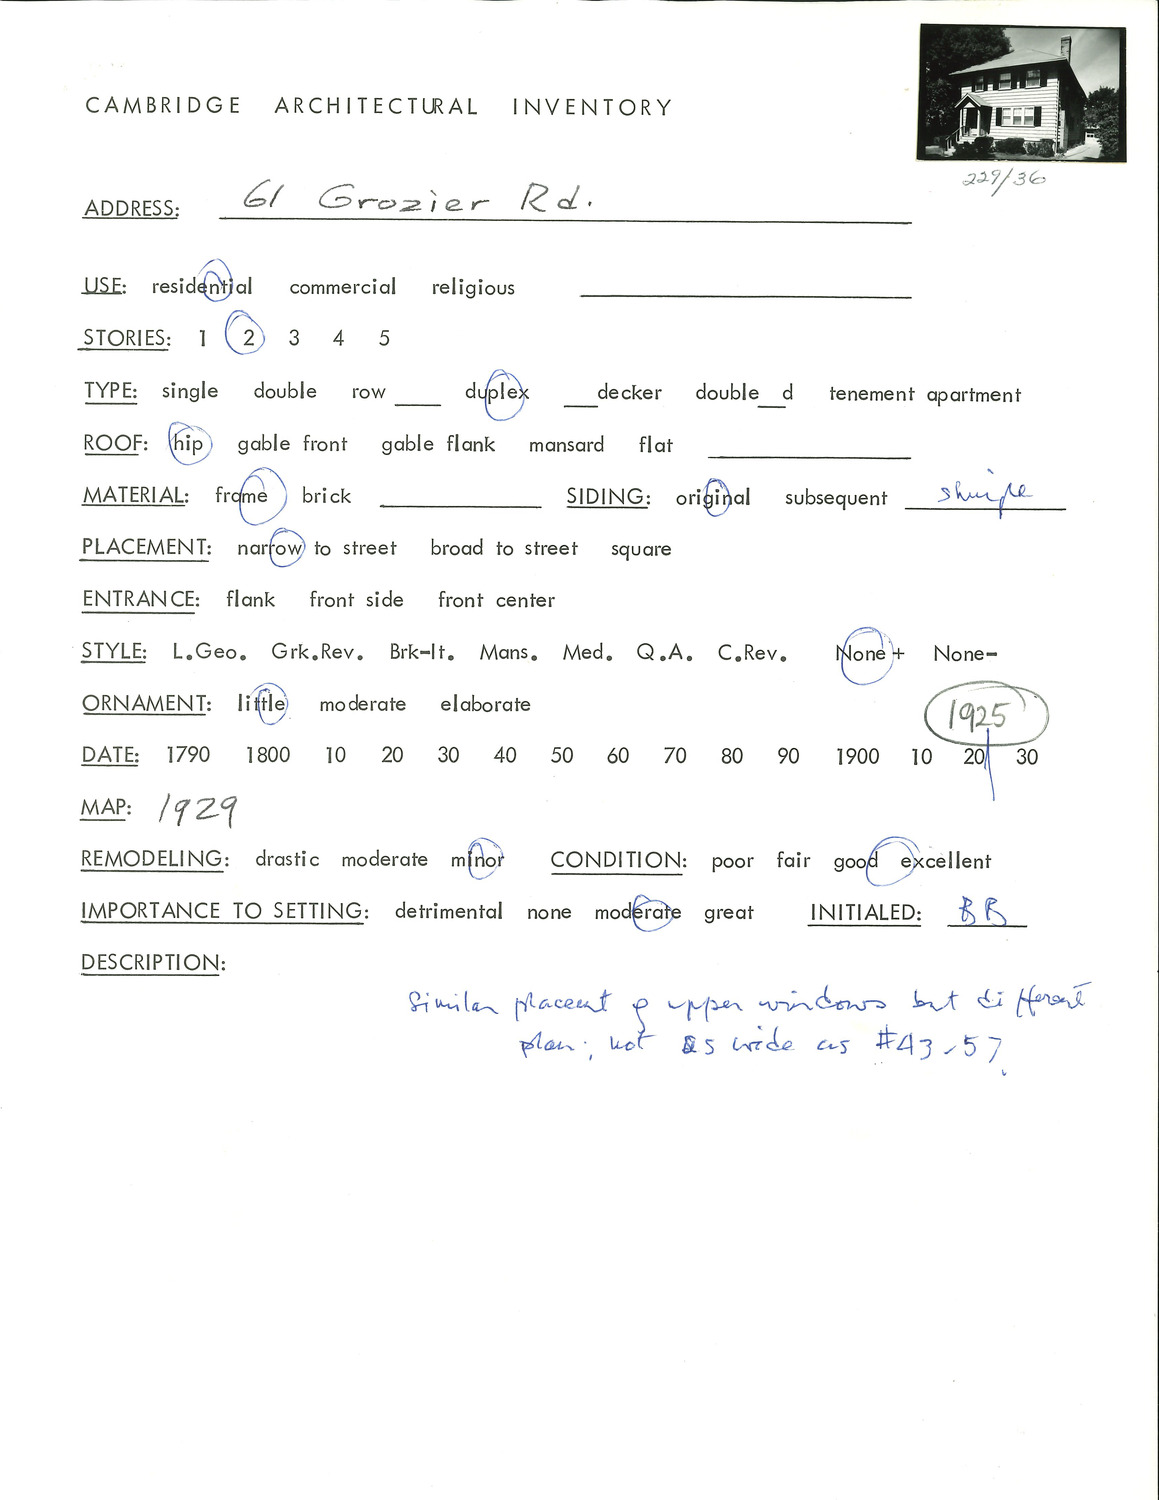 CAMBRIDGE ARCHITECTURAL INVENTORY
229/36
ADDRESS: 61 Grozier Rd.
USE: residential commercial religious
STORIES: 1 2 3 4 5
TYPE: single double row ___ duplex ___decker double__d tenement apartment
ROOF: hip gable front gable flank mansard flat
MATERIAL: frame brick SIDING: original subsequent shingle
PLACEMENT: narrow to street broad to street square
ENTRANCE: flank front side front center
STYLE: L.Geo. Grk.Rev. Brk-It. Mans. Med. Q.A. C.Rev. None+ None-
ORNAMENT: little moderate elaborate
1925
DATE: 1790 1800 10 20 30 40 50 60 70 80 90 1900 10 20 30
MAP: 1929
REMODELING: drastic moderate minor CONDITION: poor fair good excellent
IMPORTANCE TO SETTING: detrimental none moderate great INITIALED: BR
DESCRIPTION:
Similar placeent of upper windows but different
plan; not as wide as #43-57